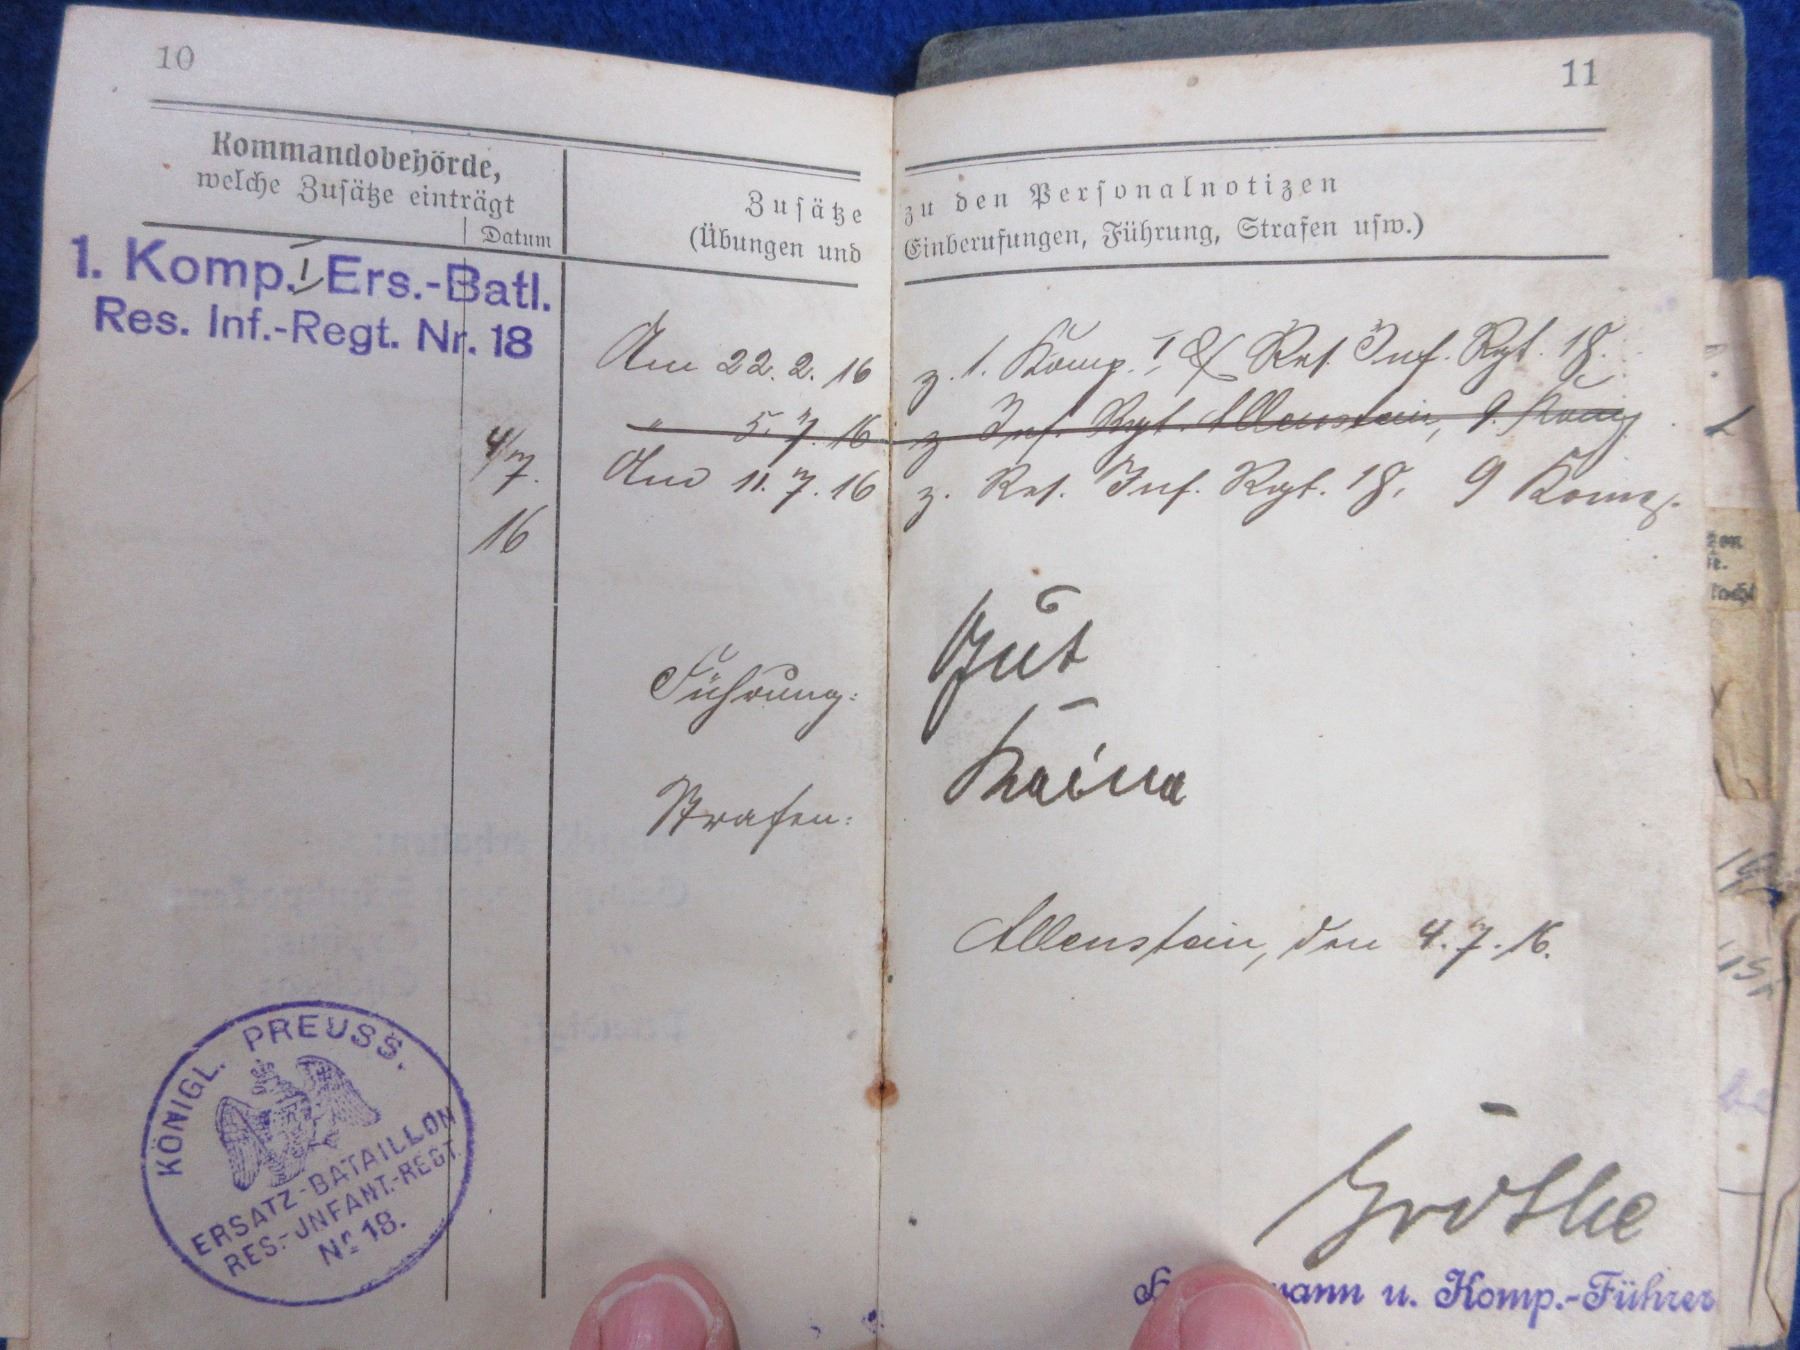 10
Kommandobehörde,
welche Zusätze einträgt
Datum
Zusätze
(Übungen und
1. Komp. I Ers.-Batl.
Res. Inf.-Regt. Nr. 18
4/7.
16
Am 22. 2. 16
" 5. 7. 16
Am 11. 7. 16
Führung:
Strafen:
KÖNIGL. PREUSS.
ERSATZ-BATAILLON
RES.-INFANT.-REGT.
No 18.
11
zu den Personalnotizen
Einberufungen, Führung, Strafen usw.)
z. 1. Komp. I Res. Inf. Rgt. 18.
z. Inf. Rgt. Allenstein, 9. Komp
z. Res. Inf. Rgt. 18, 9 Komp.
Gut
Keine
Allenstein, den 4. 7. 16.
mann u. Komp.-Führer